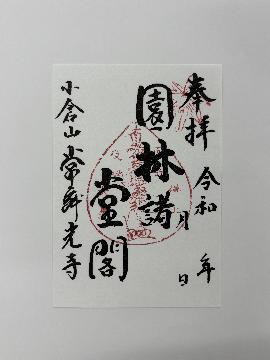 奉拝
令和 年 月 日
園林諸
堂閣
小倉山常寂光寺